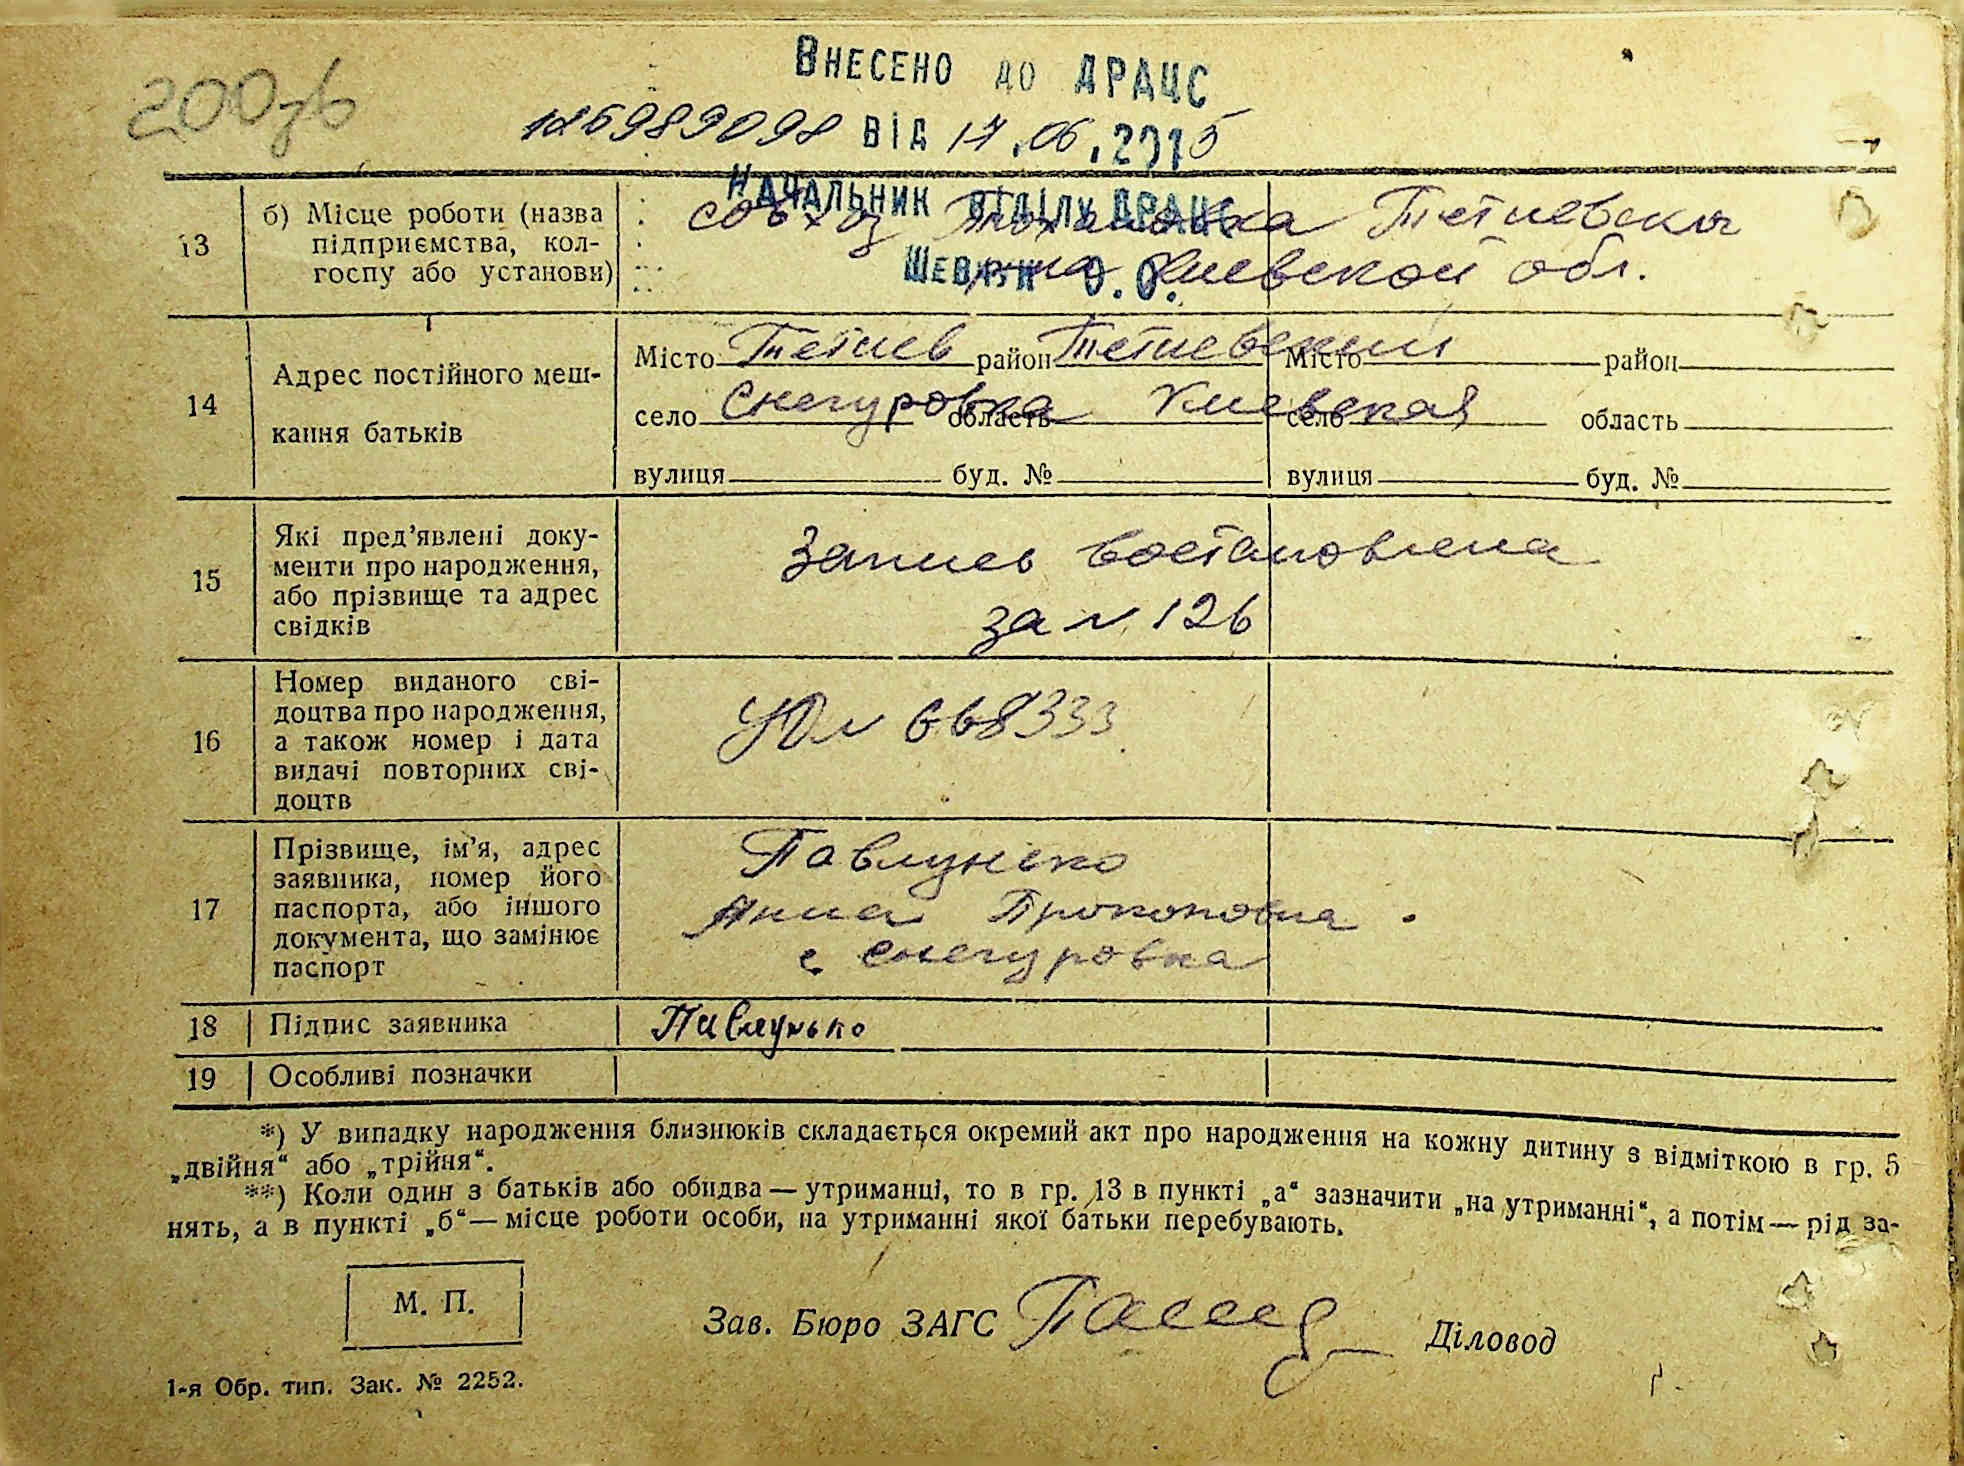 200зв
ВНЕСЕНО ДО ДРАЦС
ВІД 17.06.2015
НАЧАЛЬНИК ВІДДІЛУ ДРАЦС
13
б) Місце роботи (назва
підприємства, кол-
госпу або установи)
совхоз Тетиевский
р-на Киевской обл.
14
Адрес постійного меш-
кання батьків
Місто Тетиев район Тетиевский Місто район
село Снегуровка область Киевская село область
вулиця буд. № вулиця буд. №
15
Які пред’явлені доку-
менти про народження,
або прізвище та адрес
свідків
Запись востановлена
за № 126
16
Номер виданого сві-
доцтва про народження,
а також номер і дата
видачі повторних сві-
доцтв
№ 668333
17
Прізвище, ім’я, адрес
заявника, номер його
паспорта, або іншого
документа, що замінює
паспорт
Павлунько
Анна Прокоповна
с Снегуровка
18 Підпис заявника Павлунько
19 Особливі позначки
*) У випадку народження близнюків складається окремий акт про народження на кожну дитину з відміткою в гр. 5
„двійня“ або „трійня“.
**) Коли один з батьків або обидва — утриманці, то в гр. 13 в пункті „а“ зазначити „на утриманні“, а потім — рід за-
нять, а в пункті „б“ — місце роботи особи, на утриманні якої батьки перебувають.
М. П.
Зав. Бюро ЗАГС Діловод
1-я Обр. тип. Зак. № 2252.